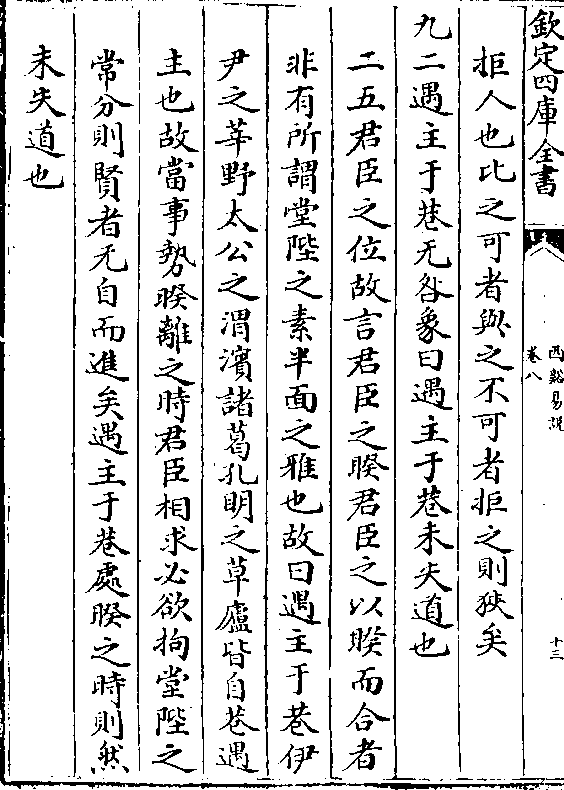 欽定四庫全書
西谿易說
卷八
十三
拒人也比之可者與之不可者拒之則狹矣
九二遇主于巷无咎象曰遇主于巷未失道也
二五君臣之位故言君臣之睽君臣之以睽而合者
非有所謂堂陛之素半面之雅也故曰遇主于巷伊
尹之莘野太公之渭濱諸葛孔明之草廬皆自巷遇
主也故當事勢睽離之時君臣相求必欲拘堂陛之
常分則賢者无自而進矣遇主于巷處睽之時則然
未失道也